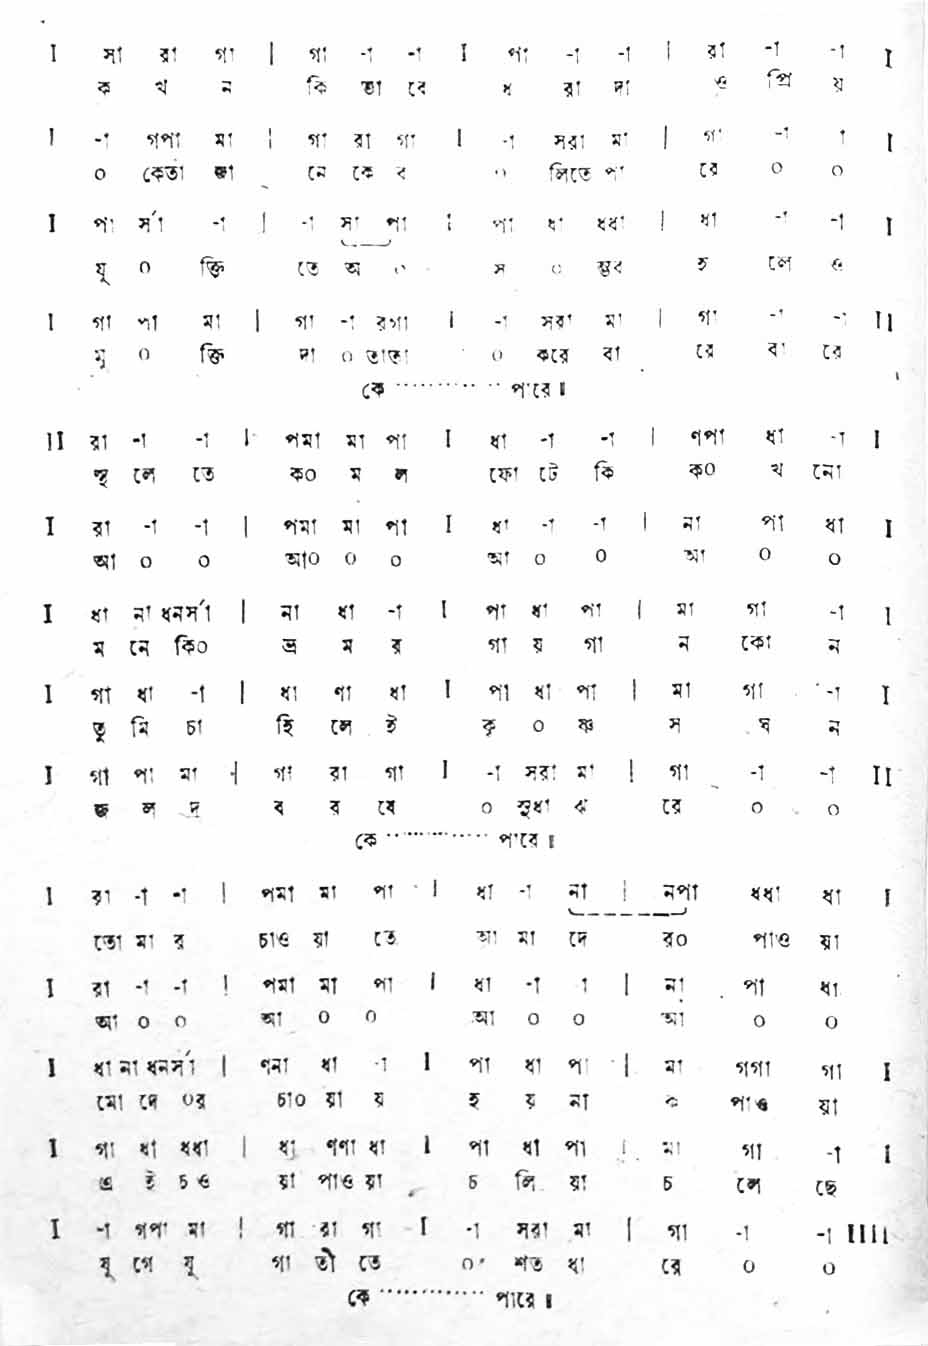 I সা রা গা | গা -া -া I পা -া -া | রা -া -া I
ক খ ন কি ভা বে ধ রা দা ও প্রি য়
I -া গপা মা | গা রা গা I -া সরা মা | গা -া া I
০ কেতা জা নে কে ব ০ লিতে পা রে ০ ০
I পা র্সা -া | -া সা পা I পা ধা ধধা | ধা -া -া I
যু ০ ক্তি তে অ ০ স ০ ম্ভব হ লে ও
I গা পা মা | গা -া রগা I -া সরা মা | গা -া -া II
মু ০ ক্তি দা ০ তাতা ০ করে বা রে বা রে
কে ............ পারে॥
II রা -া -া | পমা মা পা I ধা -া -া | ণপা ধা -া I
স্থ লে তে ক০ ম ল ফো টে কি ক০ খ নো
I রা -া -া | পমা মা পা I ধা -া -া | না পা ধা I
আ ০ ০ আ০ ০ ০ আ ০ ০ আ ০ ০
I ধা না ধনর্সা | না ধা -া I পা ধা পা | মা গা -া I
ম নে কি০ ভ্র ম র গা য় গা ন কো ন
I গা ধা -া | ধা ণা ধা I পা ধা পা | মা গা -া I
তু মি চা হি লে ই কৃ ০ ষ্ণ স ঘ ন
I গা পা মা | গা রা গা I -া সরা মা | গা -া -া II
জ ল দ ব র ষে ০ সুধা ঝ রে ০ ০
কে .............. পারে॥
I রা -া -া | পমা মা পা I ধা -া না | নপা ধধা ধা I
তো মা র চাও য়া তে আ মা দে র০ পাও য়া
I রা -া -া | পমা মা পা I ধা -া া | না পা ধা
আ ০ ০ আ ০ ০ আ ০ ০ আ ০ ০
I ধা না ধনর্সা | ণনা ধা -া I পা ধা পা | মা গগা গা I
মো দে ০র চা০ য়া য় হ য় না ক পাও য়া
I গা ধা ধধা | ধা ণণা ধা I পা ধা পা | মা গা -া I
এ ই চও য়া পাও য়া চ লি য়া চ লে ছে
I -া গপা মা | গা রা গা I -া সরা মা | গা -া -া IIII
যু গে যু গা তী তে ০ শত ধা রে ০ ০
কে ............. পারে॥